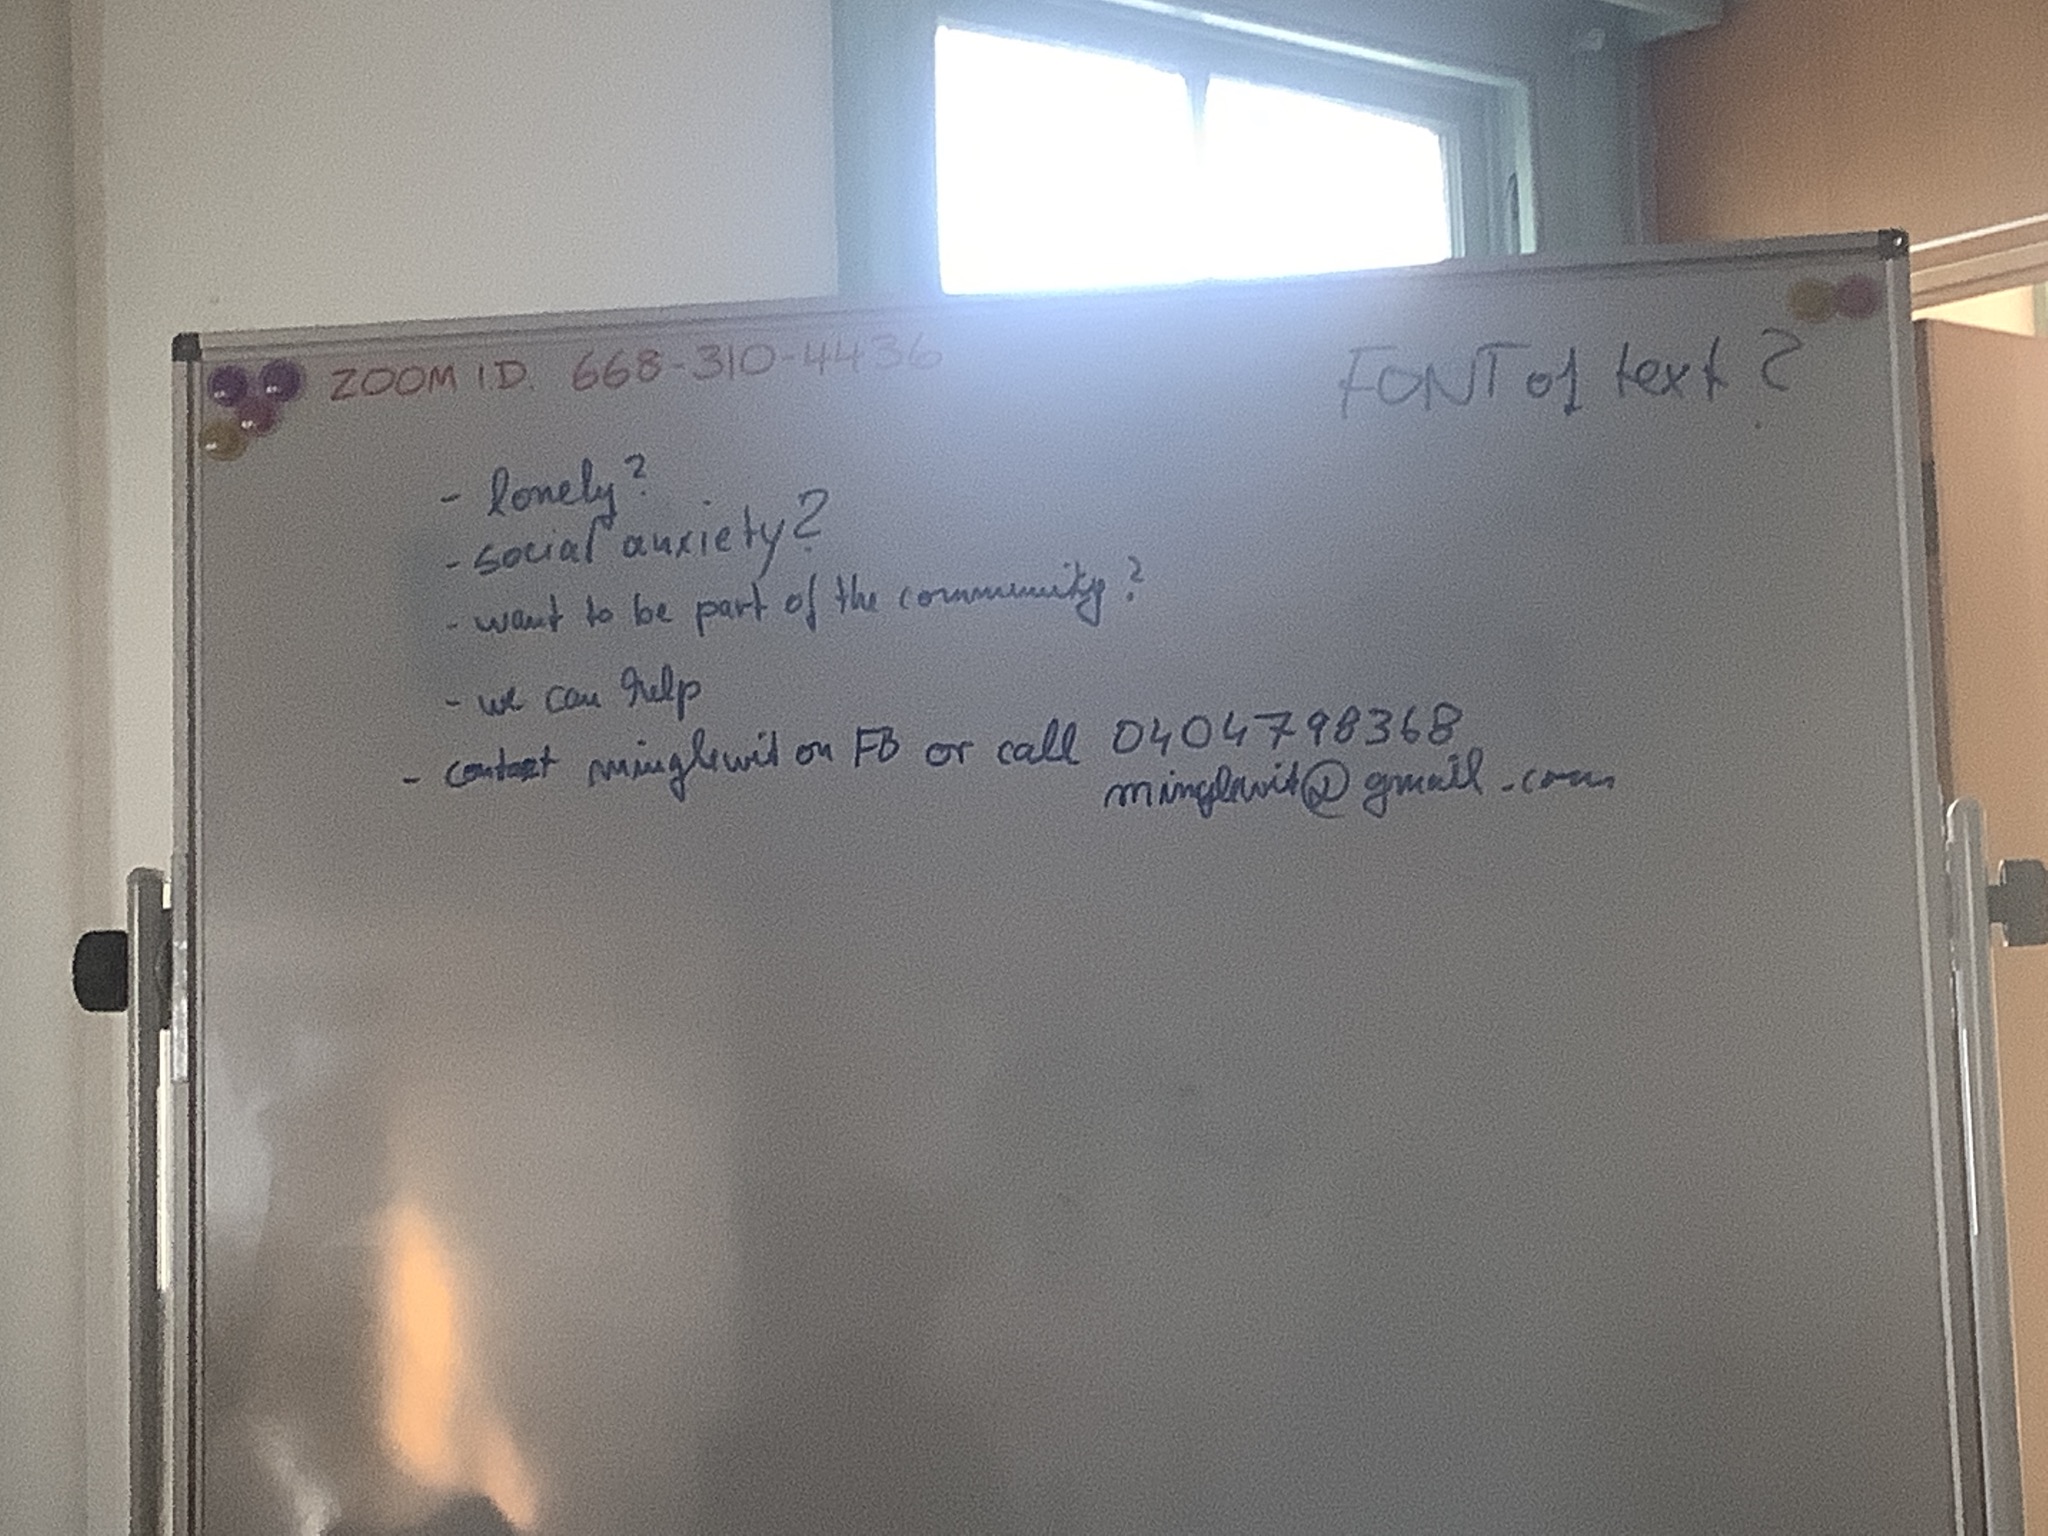 ZOOM I.D. 668-310-4436
FONT of text?
- lonely?
- social anxiety?
- want to be part of the community?
- we can help
- contact minglewit on FB or call 0404798368
minglewit@gmail.com